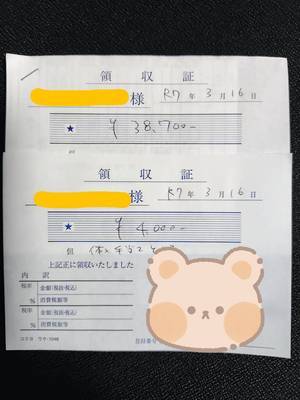 領収証
様 R7 年 3 月 16 日
★ ¥ 38,700-
領収証
様 R7 年 3 月 16 日
★ ¥ 4,000-
但
上記正に領収いたしました
内訳
税率 % 金額(税抜・税込)
消費税額等
税率 % 金額(税抜・税込)
消費税額等
コクヨ ウケ-1048
登録番号